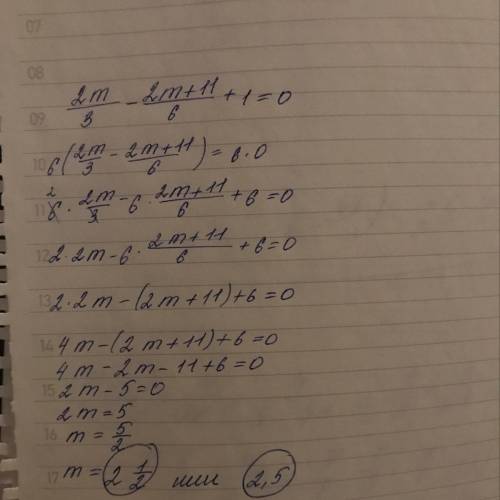 07
08
2m/3 - 2m+11/6 + 1 = 0
09
10 6(2m/3 - 2m+11/6) = 6·0
2
11 6 · 2m/3 - 6 · 2m+11/6 + 6 = 0
12 2·2m - 6 · 2m+11/6 + 6 = 0
13 2·2m - (2m+11) + 6 = 0
14 4m - (2m+11) + 6 = 0
4m - 2m - 11 + 6 = 0
15 2m - 5 = 0
2m = 5
16 m = 5/2
17 m = 2 1/2 или 2,5